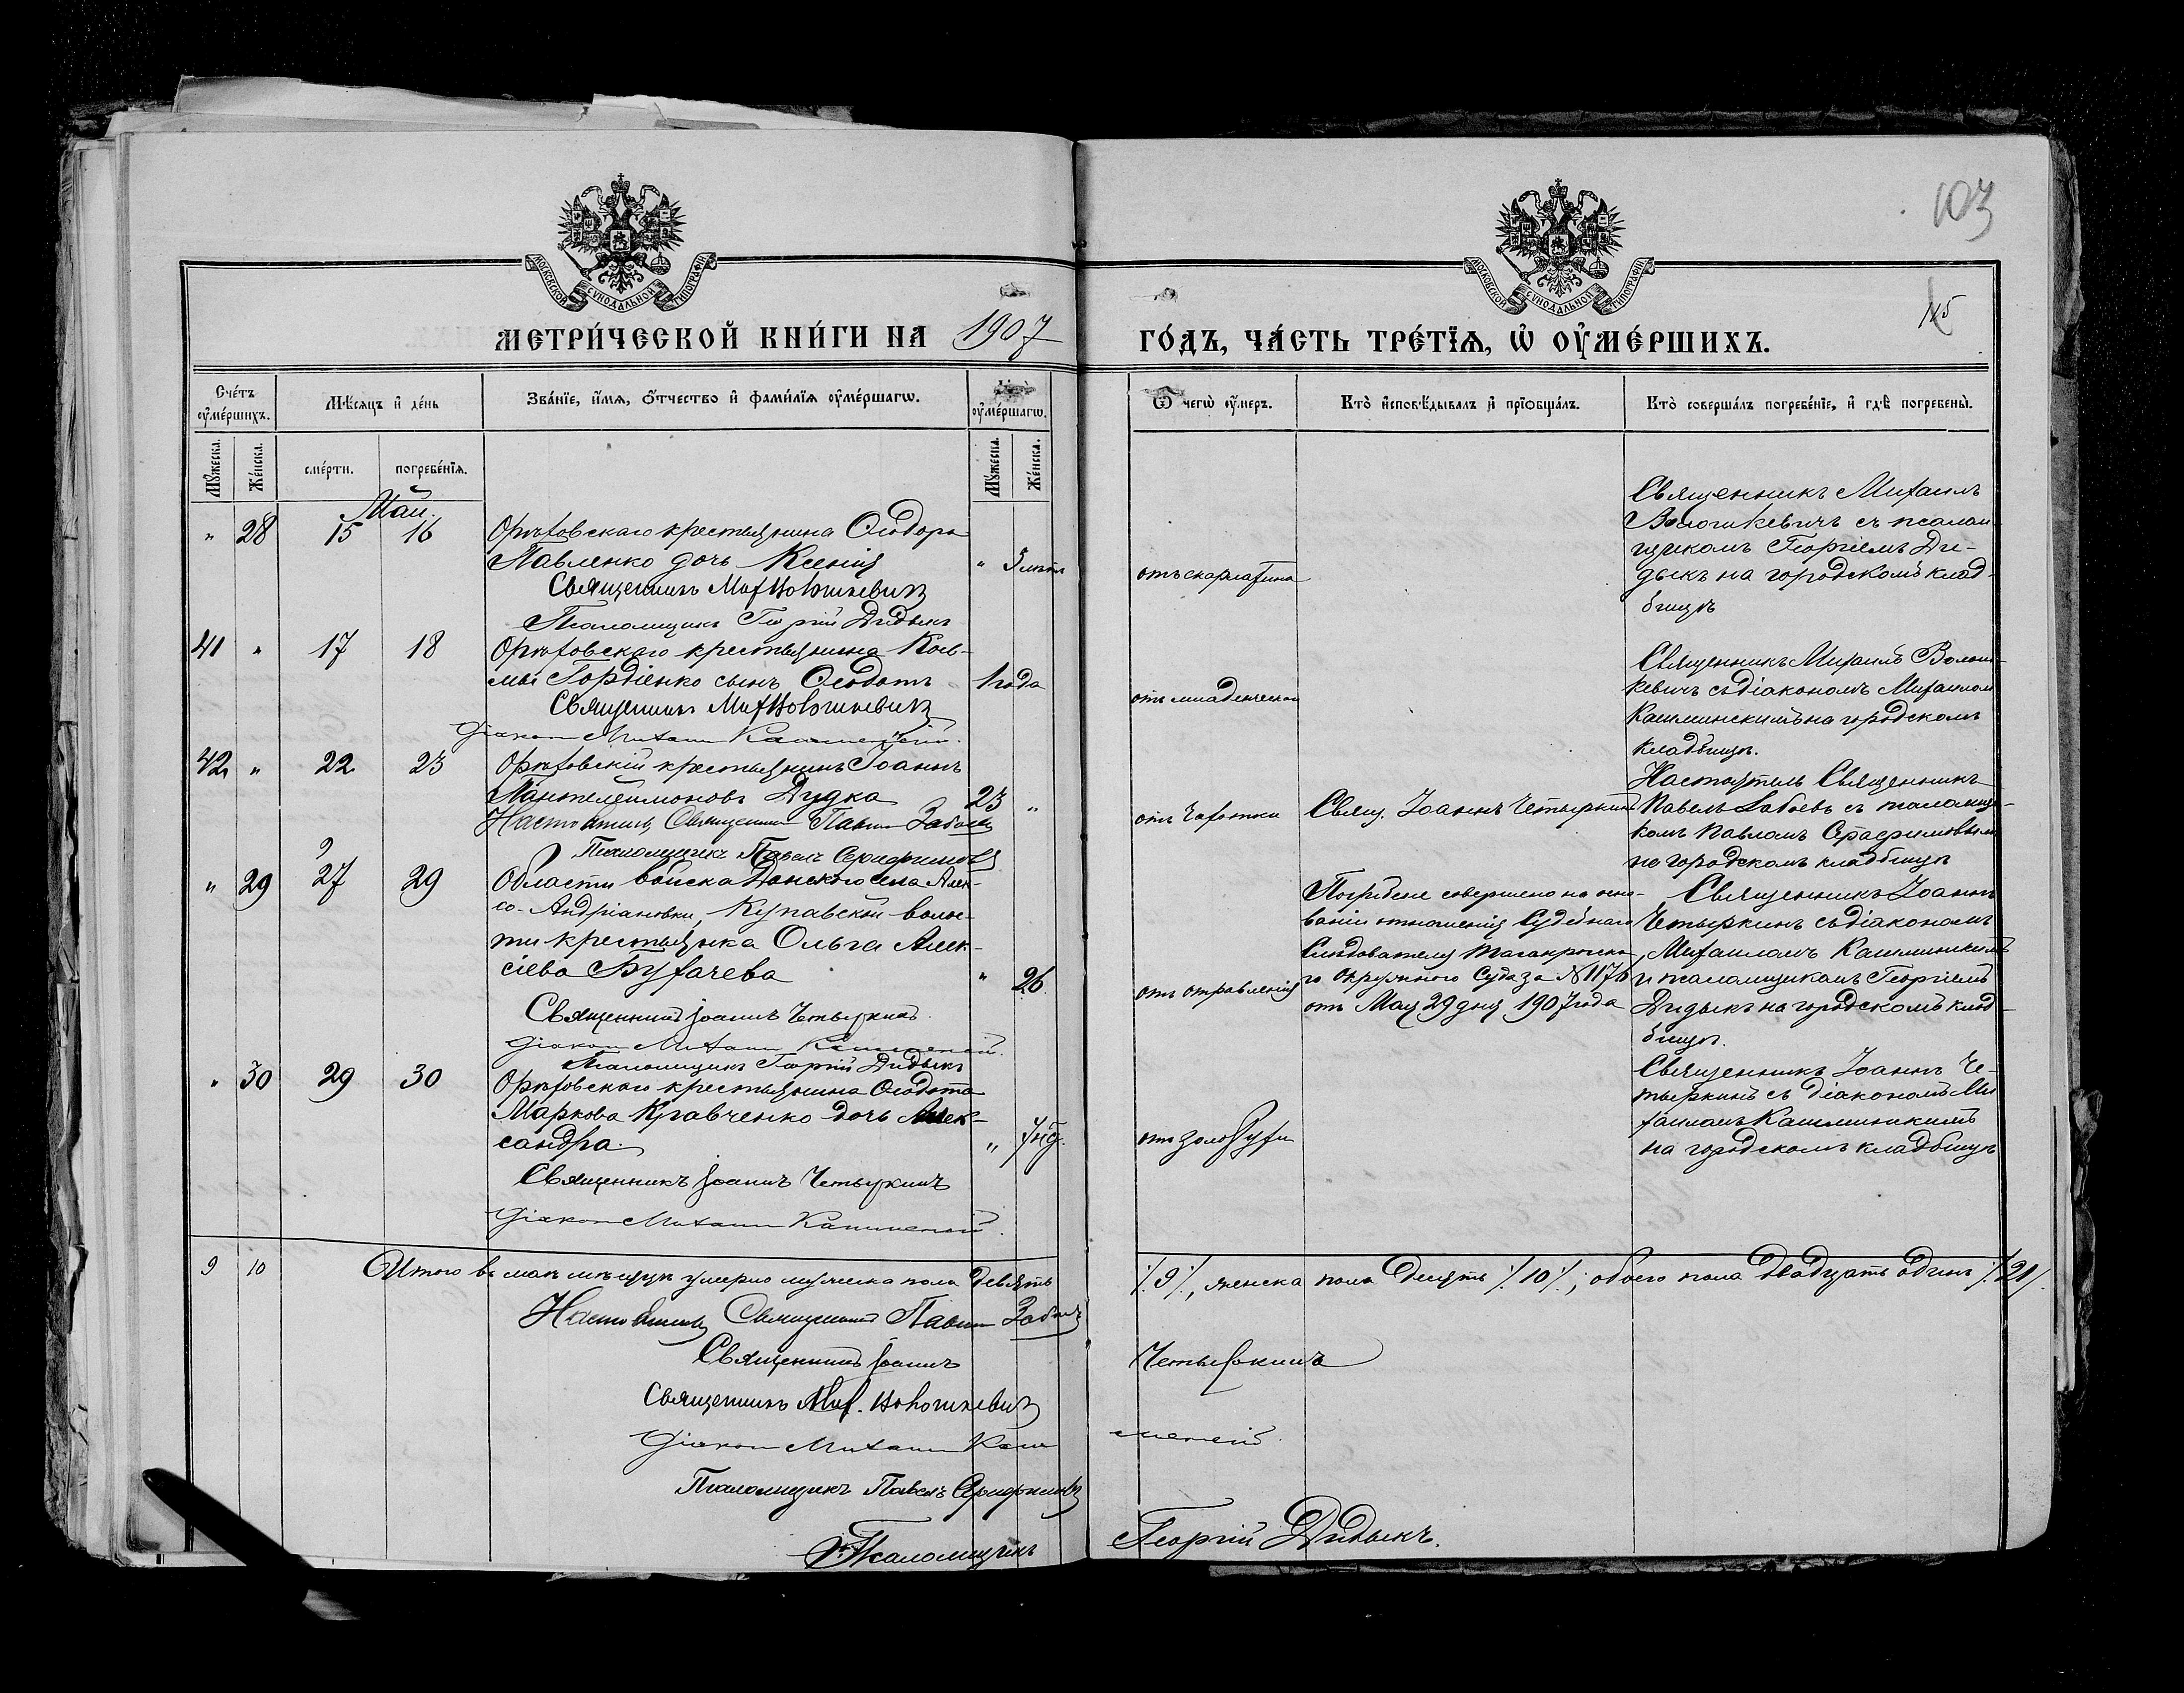 103
МОСКОВСКОЙ СѴНОДАЛЬНОЙ ТИПОГРАФІИ
МОСКОВСКОЙ СѴНОДАЛЬНОЙ ТИПОГРАФІИ
МЕТРИ́ЧЕСКОЙ КНИ́ГИ НА 1907
ГО́ДЪ, ЧА́СТЬ ТРЕ́ТЇѦ, Ѡ҆ ОУ҆МЕ́РШИХЪ.
Сче́тъ оу҆ме́ршихъ.
Мѣ́сяцъ и҆ де́нь
Зва́нїе, и҆́мѧ, ѻ҆́тчество и҆ фами́лїѧ оу҆ме́ршагѡ.
оу҆ме́ршагѡ.
Ѿ чегѡ̀ оу҆́меръ.
Кто̀ и҆сповѣ́дывалъ и҆ прїобща́лъ.
Кто̀ соверша́лъ погребе́нїе, и҆ гдѣ̀ погребены̀.
Мꙋ́жеска. Же́нска. сме́рти. погребе́нїѧ. Мꙋ́жеска. Же́нска.
Май.
" 28 15 16 Орѣховскаго крестьянина Ѳеодора
Павленко дочь Ксенія
Священникъ Мих Волошкевичъ
Псаломщикъ Георгій Дидыкъ
отъ скарлатина
Священникъ Михаилъ
Волошкевичъ съ псалом-
щикомъ Георгіемъ Ди-
дыкъ на городскомъ клад-
бищѣ
41 " 17 18 Орѣховскаго крестьянина Кось-
мы Гордіенко сынъ Ѳеодотъ 1 года
Священникъ Мих Волошкевичъ
Діаконъ Михаилъ
отъ младенческой
Священникъ Михаилъ Волош-
кевичъ съ діакономъ Михаиломъ
на городскомъ
кладбищѣ.
42 " 22 23 Орѣховскій крестьянинъ Іоаннъ
Пантелеимоновъ Дудка 23 "
Настоятель Священникъ Павелъ
Псаломщикъ Павелъ Серафимовъ
отъ чахотки
Свящ. Іоаннъ Четыркинъ
Настоятель Священникъ
Павелъ съ псаломщи-
комъ Павломъ Серафимовымъ
на городскомъ кладбищѣ
" 29 27 29 Области войска Донского села Алек-
со-Андріановки, волос-
ти крестьянка Ольга Алек-
сіева Бухачева " 26
Священникъ Іоаннъ Четыркинъ.
Діаконъ Михаилъ
Псаломщикъ Георгій Дидыкъ
отъ отравленія
Погребеніе совершено на осно-
ваніи отношенія Судебнаго
Слѣдователя Таганрогска-
го Окружного Суда за № 1176
отъ Мая 29 дня 1907 года
Священникъ Іоаннъ
Четыркинъ съ діакономъ
Михаиломъ
и псаломщикомъ Георгіемъ
Дидыкъ на городскомъ клад-
бищѣ.
" 30 29 30 Орѣховскаго крестьянина Ѳеодота
Маркова Кравченко дочь Алек-
сандра. "
Священникъ Іоаннъ Четыркинъ
Діаконъ Михаилъ
отъ золотухи
Священникъ Іоаннъ Че-
тыркинъ съ діакономъ Ми-
хаиломъ
на городскомъ кладбищѣ
9 10 Итого въ маѣ мѣсяцѣ умерло мужеска пола девять
/.9/., женска пола десять /.10/.; обоего пола двадцать одинъ /.21/.
Настоятель Священникъ Павелъ
Священникъ Іоаннъ Четыркинъ
Священникъ Мих. Волошкевичъ
Діаконъ Михаилъ
Псаломщикъ Павелъ Серафимовъ
Псаломщикъ Георгій Дидыкъ.